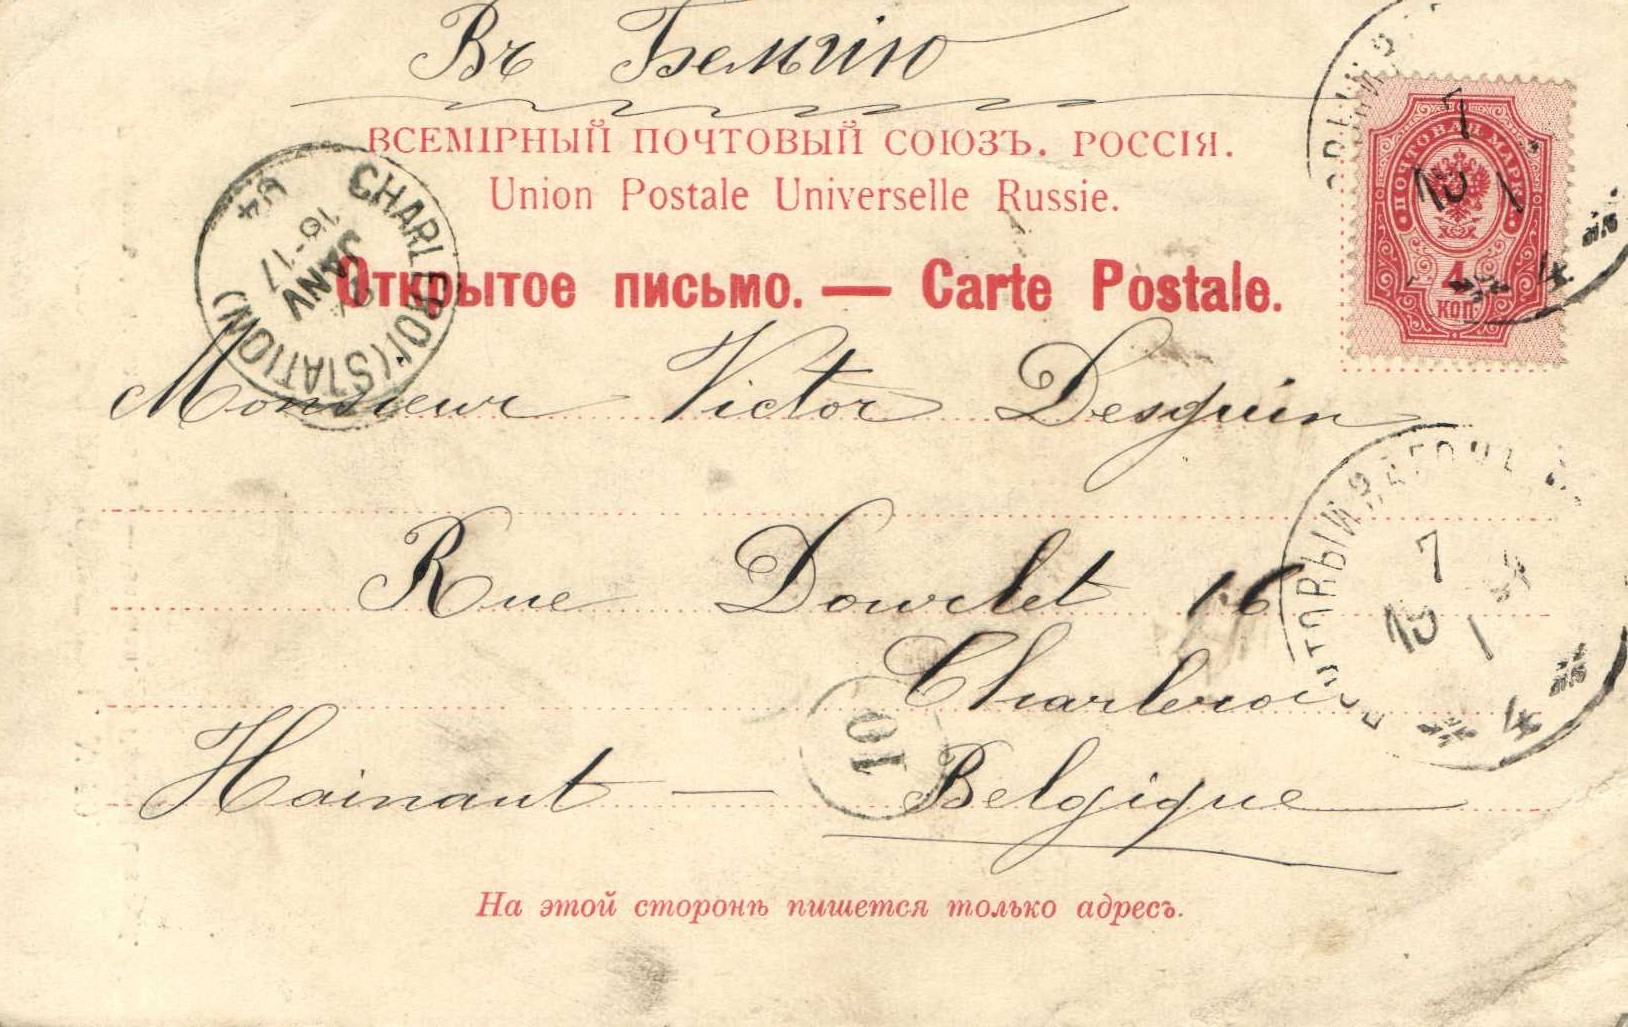 Въ Бельгію
ВСЕМІРНЫЙ ПОЧТОВЫЙ СОЮЗЪ. РОССІЯ.
Union Postale Universelle Russie.
Открытое письмо. — Carte Postale.
ПОЧТОВАЯ МАРКА
4
КОП.
CHARLEROI (STATION)
16-17
JANV
04
Monsieur Victor Desguin
Rue Dourlet 16
Charleroi
Hainaut — Belgique
10
ПОЧТОВЫЙ ВАГОНЪ
7
1
4
На этой сторонѣ пишется только адресъ.